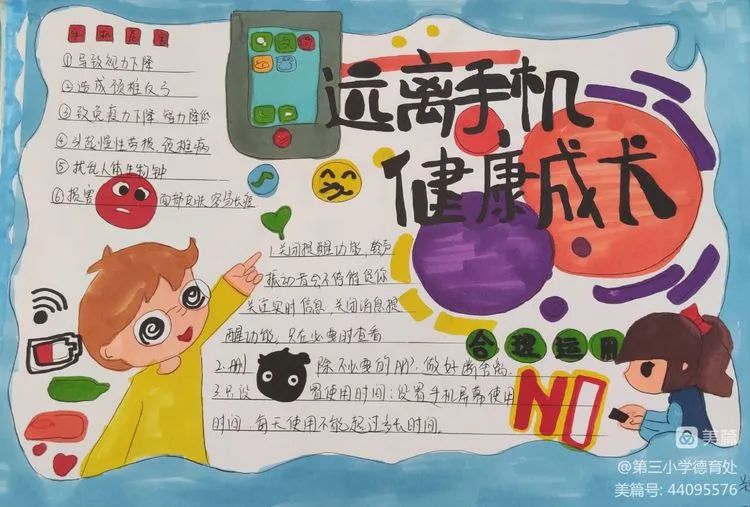 远离手机
健康成长
手机危害
①导致视力下降
②造成颈椎反弓
③致免疫力下降 智力降低
④引起慢性劳损 颈椎病
⑤扰乱人体生物钟
⑥损害 面部皮肤 容易长痘
合理运用
1.关闭提醒功能,铃声
振动音会不停催促你
关注实时信息,关闭消息提
醒功能,只在必要时查看
2.删 除不必要的APP:做好断舍离
3.只设 置使用时间:设置手机屏幕使用
时间,每天使用不能超过多长时间.
NO
美篇
@第三小学德育处
美篇号: 44095576